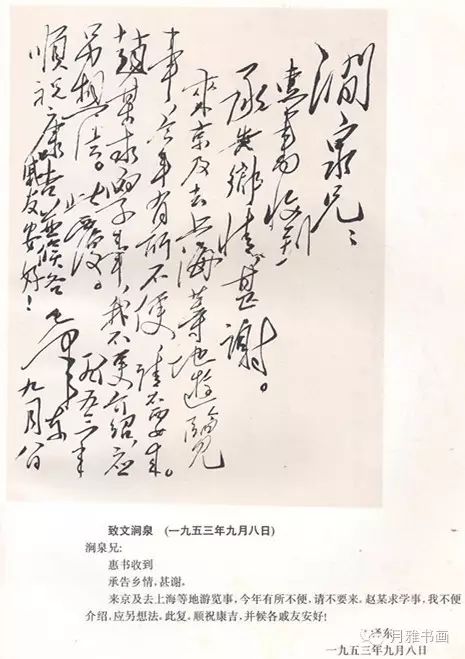 澗泉兄：
惠書收到
承告鄉情，甚謝。
來京及去上海等地遊覽
事，今年有所不便，請不要來。
趙某求學事，我不便介紹，應
另想法。此復。
順祝康吉，並候各
戚友安好！
毛澤東
一九五三年
九月八日
致文涧泉 (一九五三年九月八日)
涧泉兄：
惠书收到
承告乡情，甚谢。
来京及去上海等地游览事，今年有所不便，请不要来。赵某求学事，我不便
介绍，应另想法，此复，顺祝康吉，并候各戚友安好！
泽东
一九五三年九月八日
月雅书画